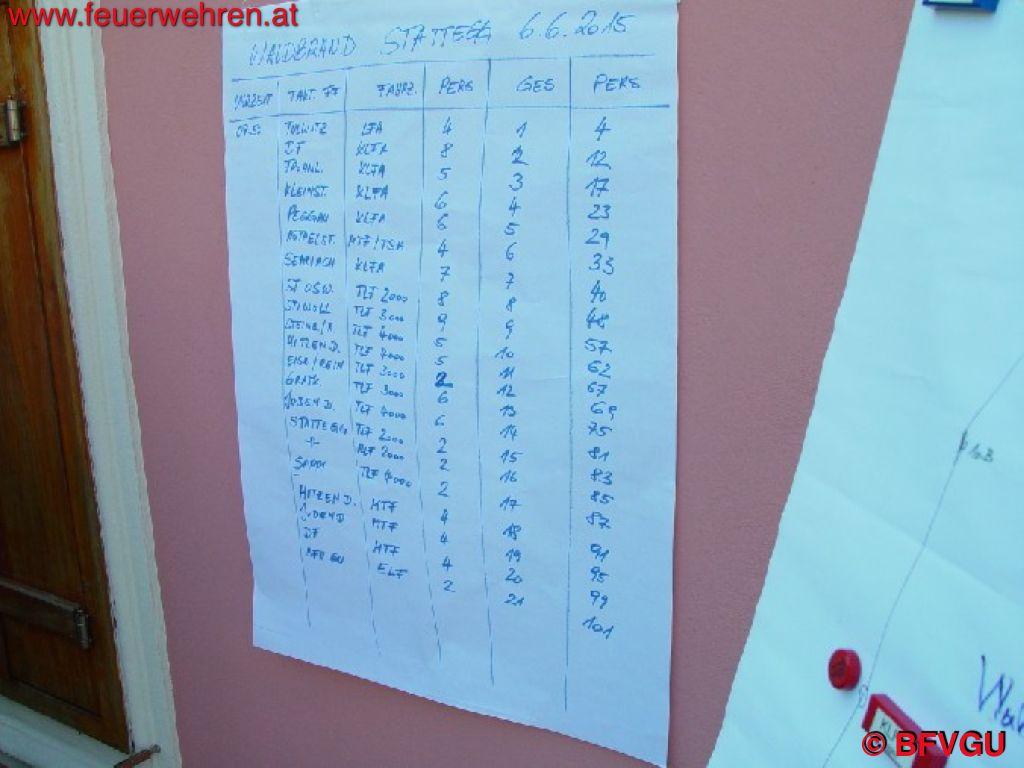 www.feuerwehren.at
WALDBRAND STATTEGG 6.6.2015
UHRZEIT TAKT. FF FAHRZ. PERS GES PERS
LFA 4 1 4
DF KLFA 8 2 12
KLFA 5 3 17
KLEINST. KLFA 6 4 23
PEGGAU KLFA 6 5 29
MTF/TSA 4 6 33
SEMRIACH KLFA 7 7 40
ST OSW. TLF 2000 8 8 48
STIWOLL TLF 3000 9 9 57
STEINB/R TLF 4000 5 10 62
HITZEND. TLF 4000 5 11 67
EISB/REIN TLF 3000 2 12 69
GRATK. TLF 3000 6 13 75
JUDEND. TLF 4000 6 14 81
STATTEGG TLF 2000 2 15 83
2000 2 16 85
TLF 4000 2 17 87
HITZEND. MTF 4 18 91
JUDEND MTF 4 19 95
DF MTF 4 20 99
BFV GU ELF 2 21 101
KU
© BFVGU